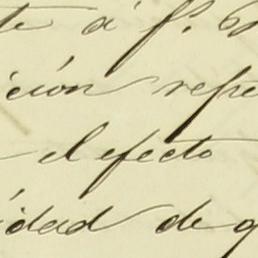 te á f.
ición repe
el efecto
idad de q